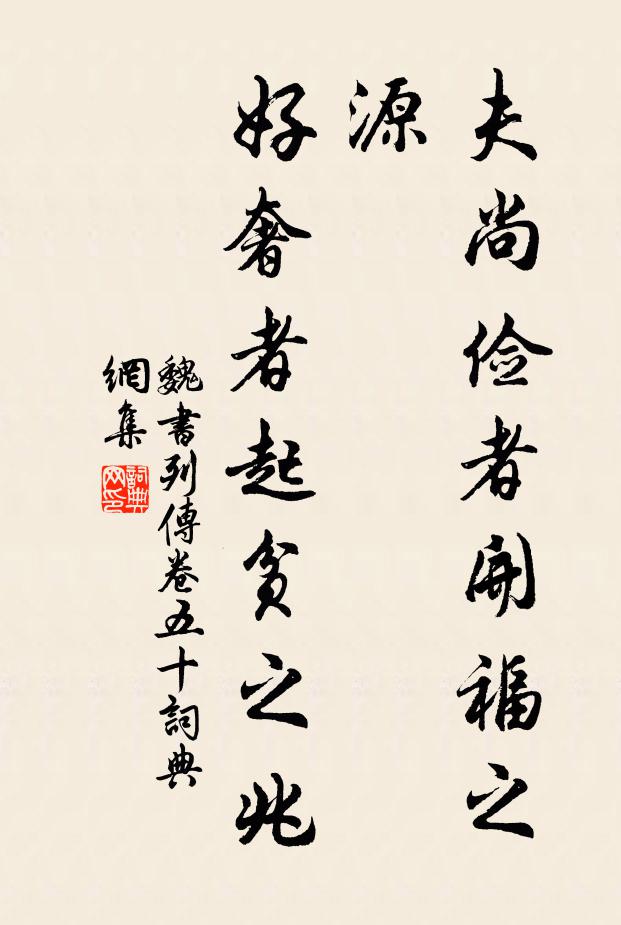 夫尚俭者開福之
源
好奢者起貧之兆
魏書列傳卷五十詞典
網集
詞典
网印